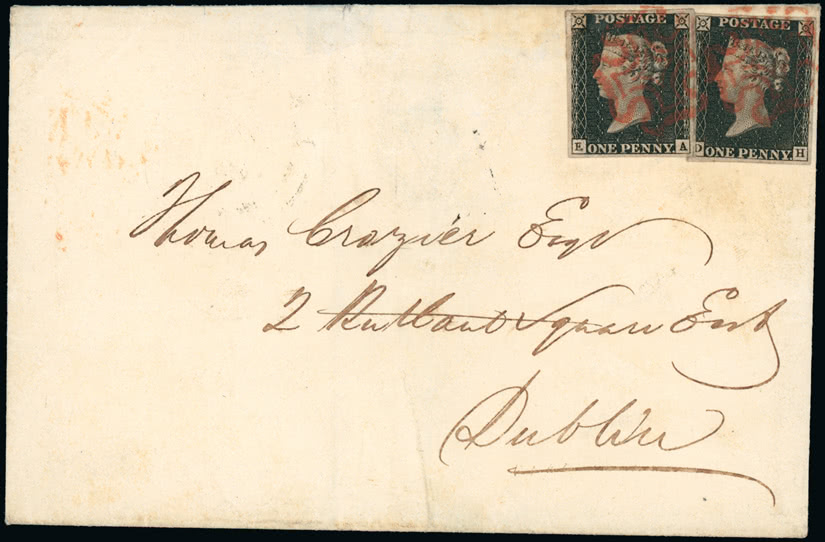 POSTAGE POSTAGE
E A D H
ONE PENNY ONE PENNY
Thomas Crozier Esqr
2 Rutland Square East
Dublin